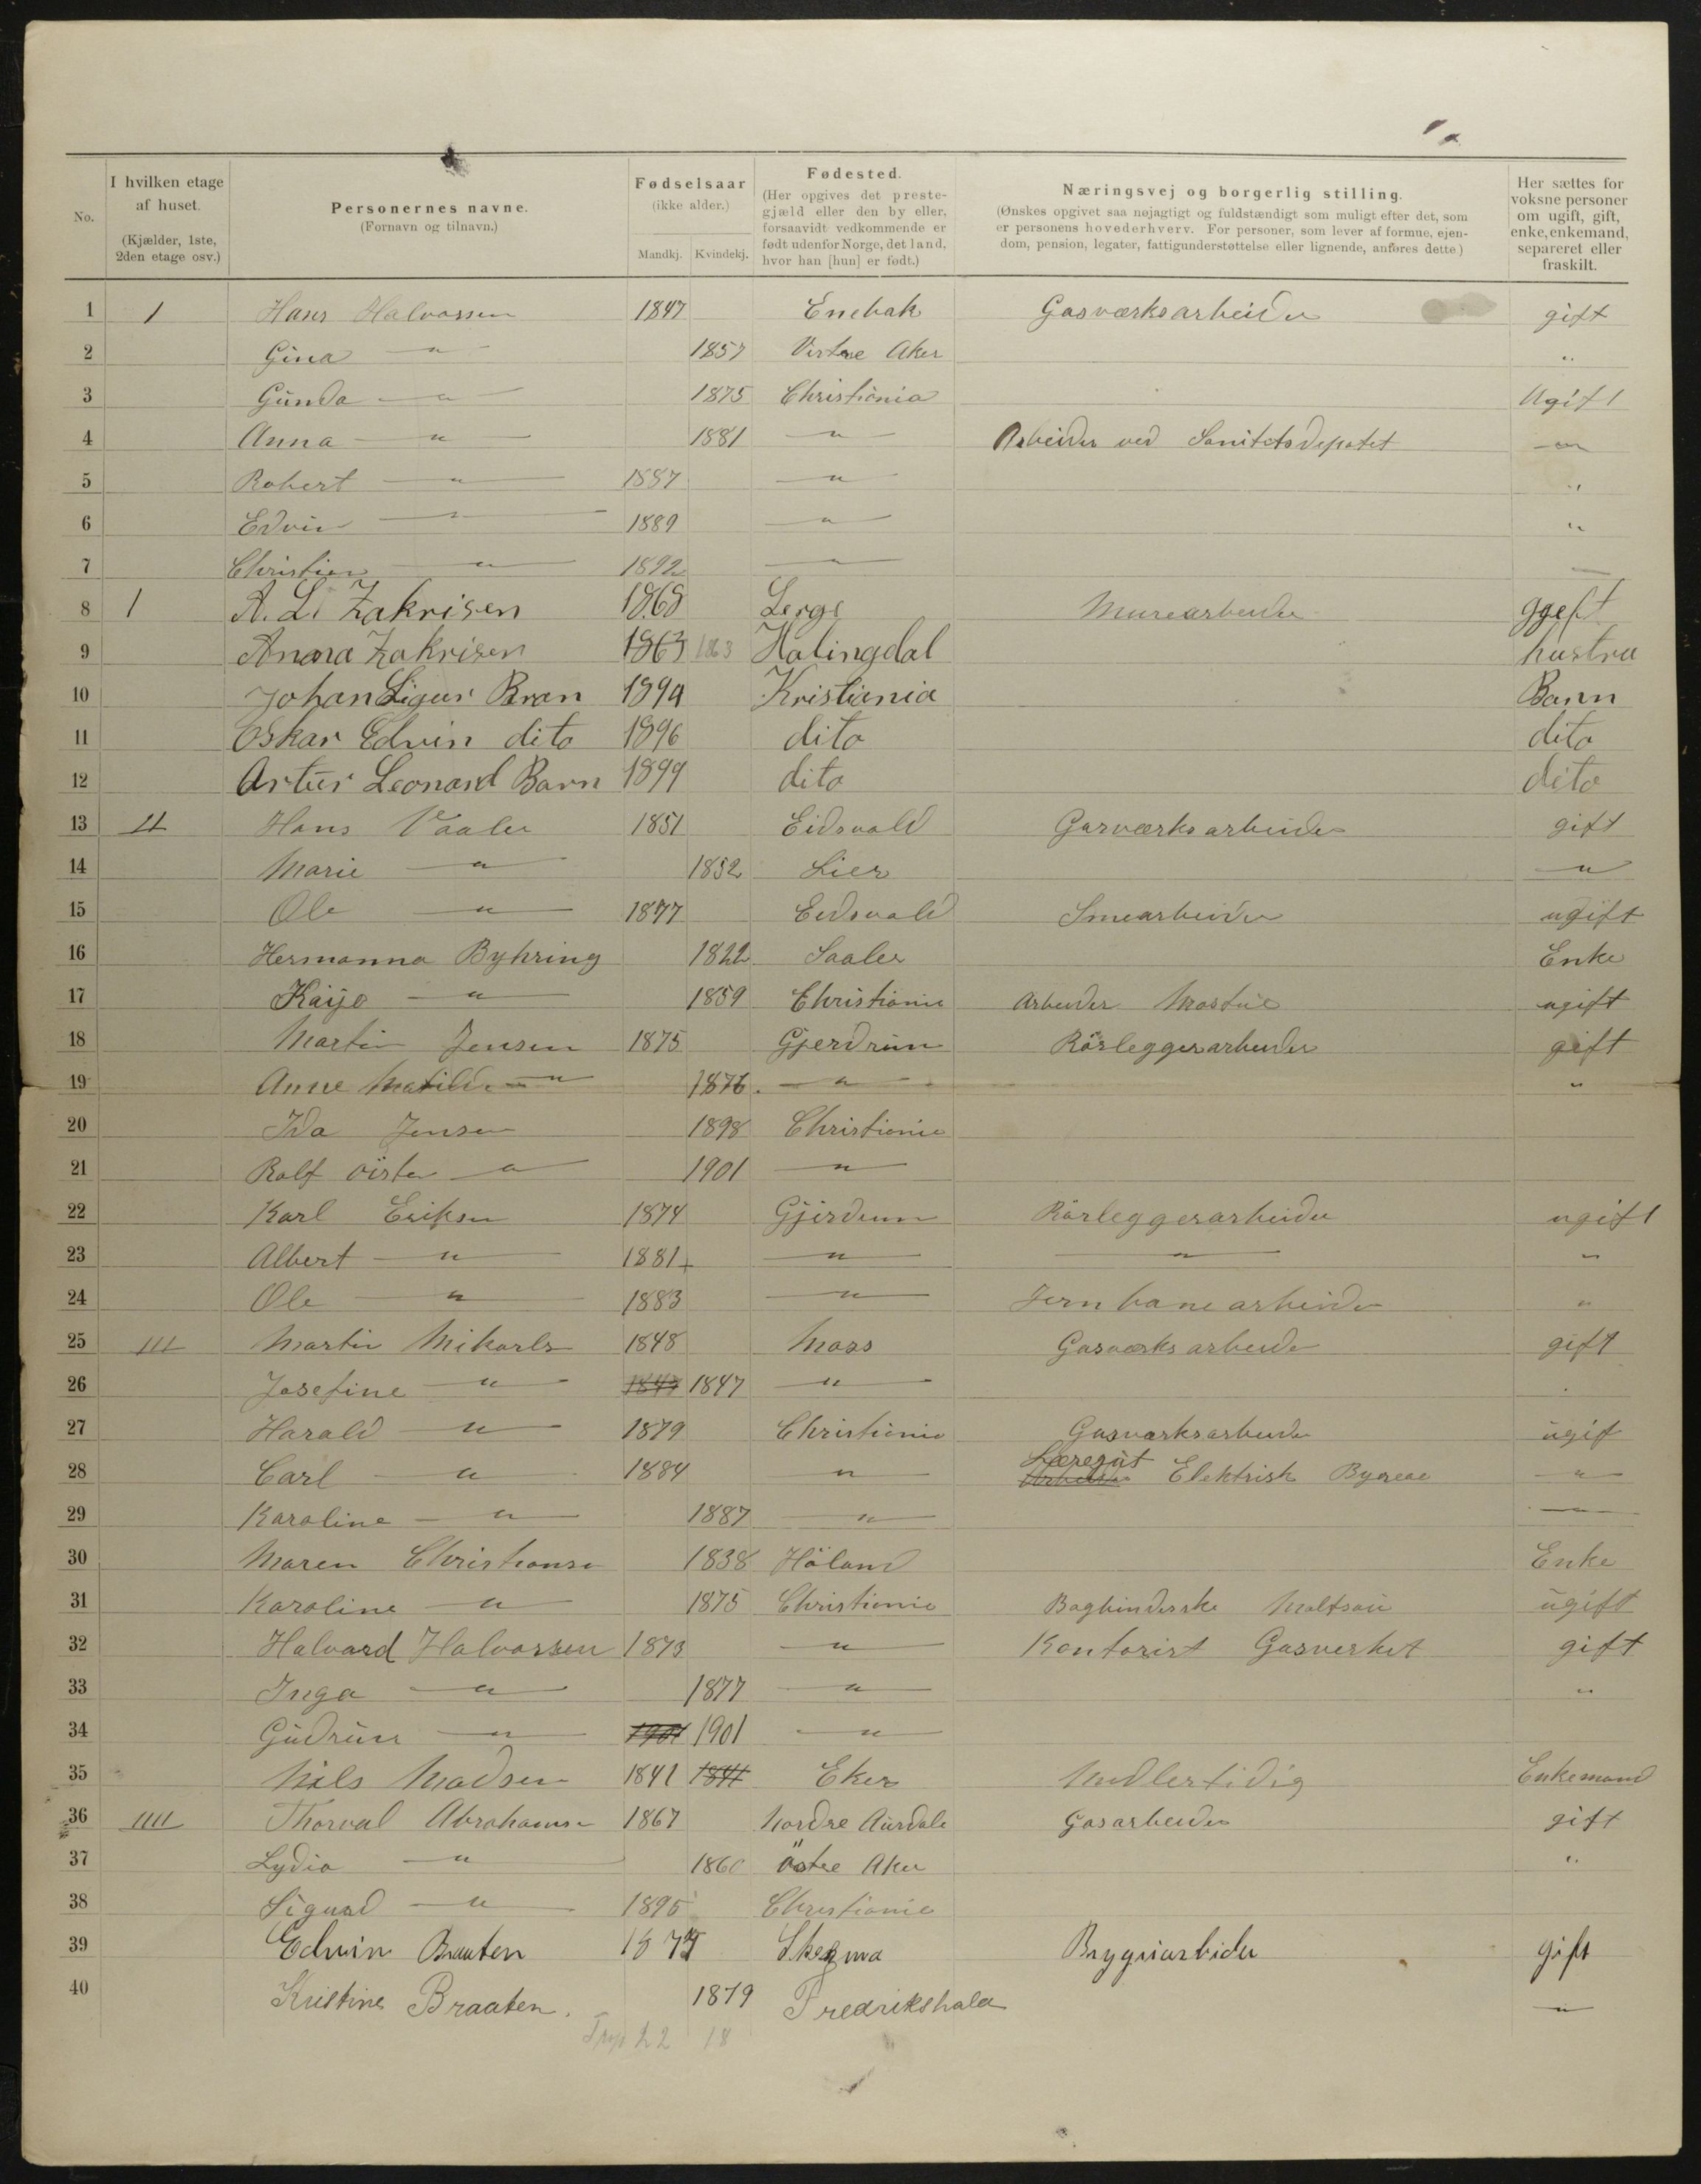 No.
I hvilken etage af huset.
(Kjælder, 1ste, 2den etage osv.)
Personernes navne.
(Fornavn og tilnavn.)
Fødselsaar
(ikke alder.)
Mandkj. Kvindekj.
Fødested.
(Her opgives det prestegjæld eller den by eller, forsaavidt vedkommende er født udenfor Norge, det land, hvor han [hun] er født.)
Næringsvej og borgerlig stilling.
(Ønskes opgivet saa nøjagtigt og fuldstændigt som muligt efter det, som er personens hovederhverv. For personer, som lever af formue, ejendom, pension, legater, fattigunderstøttelse eller lignende, anføres dette)
Her sættes for voksne personer om ugift, gift, enke, enkemand, separeret eller fraskilt.
1 I Hans Halvorsen 1847 Enebak Gasværksarbeider gift
2 Gina — " — 1857 Vestre Aker "
3 Gunda — " — 1875 Christiania Ugift
4 Anna — " — 1881 — " — Arbeider ved Sanitetsdepotet — " —
5 Robert — " — 1887 — " — "
6 Edvin — " — 1889 — " — "
7 Christian — " — 1892 — " — —
8 I A. L. Zakrisen 1868 Murearbeider
9 Anna Zakrisen 1863 1863 Halingdal hustru
10 Johan Bran 1894 Kristiania Barn
11 Oskar Edvin dito 1896 dito dito
12 Artur Leonard Barn 1899 dito dito
13 II Hans Vaaler 1851 Eidsvold Gasværksarbeider gift
14 Marie — " — 1852 Lier — " —
15 Ole — " — 1877 Eidsvold Smearbeider ugift
16 Hermanna Byhring 1822 Saaler Enke
17 — " — 1859 Christiania Arbeider ugift
18 Martin Jensen 1875 Gjerdrum Rörleggerarbeider gift
19 Anne Matilde — " — 1876 — " — "
20 Ida Jensen 1898 Christiania
21 Rolf — " — 1901 — " —
22 Karl Eriksen 1874 Gjerdrum Rörleggerarbeider ugift
23 Albert — " — 1881 — " — — " — "
24 Ole — " — 1883 — " — Jernbanearbeider "
25 III Martin Mikaels 1848 Moss Gasværksarbeider gift
26 Josefine — " — 1847 1847 — " —
27 Harald — " — 1879 Christiania Gasværksarbeider ugif
28 Carl — " — 1884 — " — Læregut Elektrisk — " —
29 Karoline — " — 1887 — " — —
30 Maren Christianse 1838 Höland Enke
31 Karoline — " — 1875 Christiania Bogbinderske ugift
32 Halvard Halvorsen 1873 — " — Kontorist Gasverket gift
33 Inga — " — 1877 — " — "
34 Gudrun — " — 1901 1901 — " —
35 Nils Madsen 1841 1841 Eker Enkemand
36 IIII Thorval Abrahamsen 1867 Nordre Aurdale Gasarbeider gift
37 Lydia — " — 1860 Östre Aker "
38 Sigurd — " — 1895 Christiania
39 Edwin Braaten Bryggiarbider gift
40 Kristine Braaten. 1879 Fredrikshald — " —
22 18